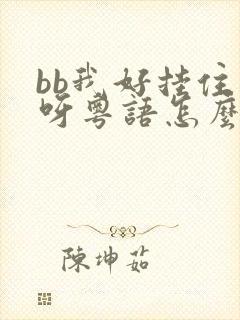 bb我好挂住
呀粵語怎麼
陳坤茹